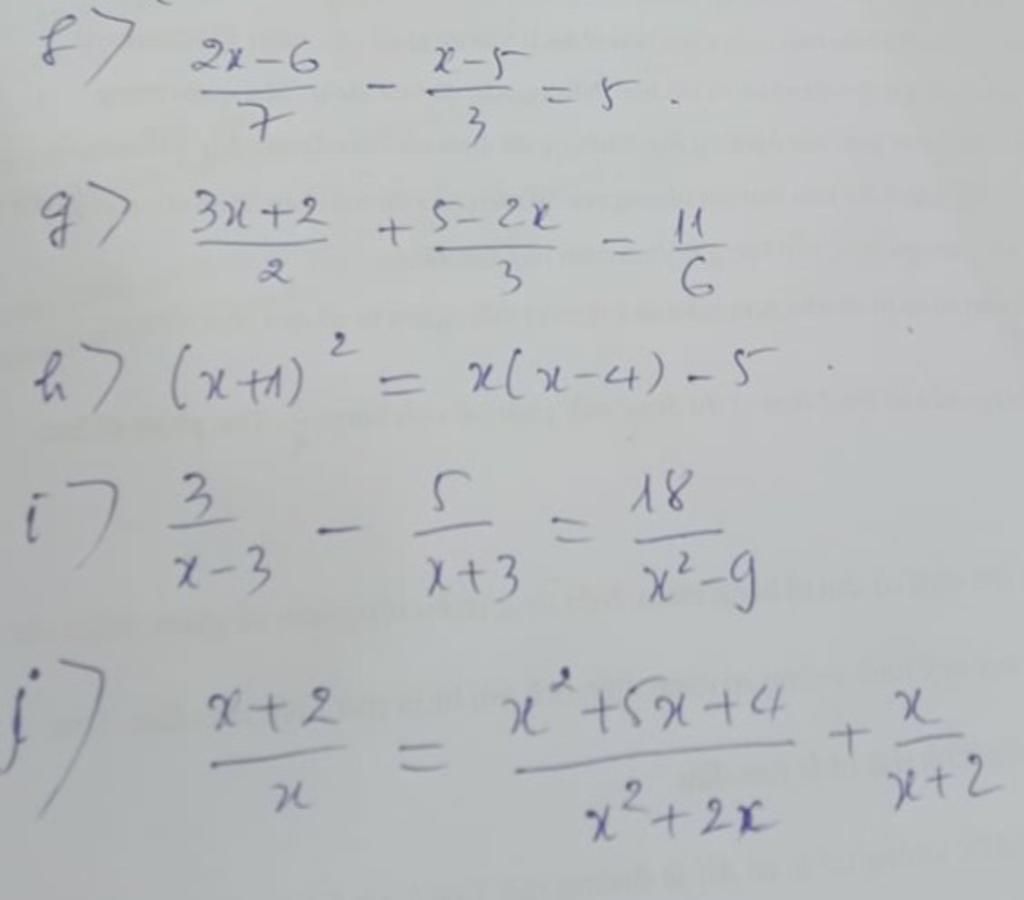 f> (2x-6)/7 - (x-5)/3 = 5.
g> (3x+2)/2 + (5-2x)/3 = 11/6
h> (x+1)² = x(x-4) - 5
i> 3/(x-3) - 5/(x+3) = 18/(x²-9)
j> (x+2)/x = (x²+5x+4)/(x²+2x) + x/(x+2)